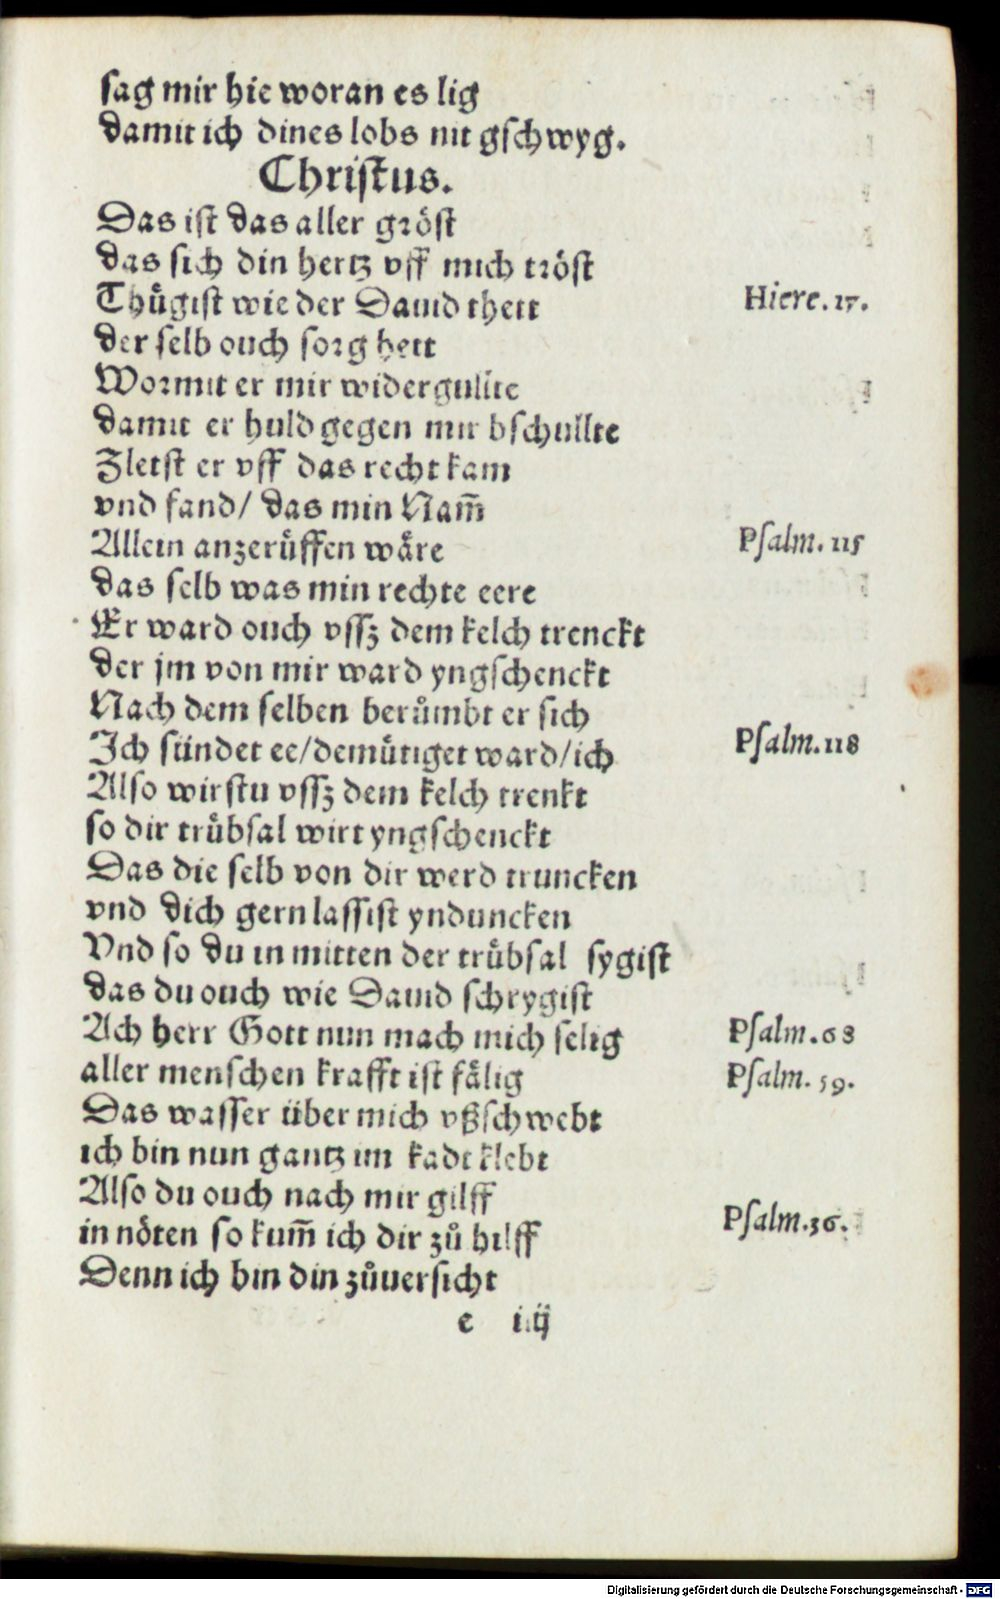 sag mir hie woran es lig
damit ich dines lobs nit gschwyg.
Christus.
Das ist das aller gröst
das sich din hertz vff mich tröst
Thuͤgist wie der Dauid thett
Hiere. 17.
der selb ouch sorg hett
Wormit er mir widergullte
damit er huld gegen mir bschullte
Zletst er vff das recht kam
vnd fand/ das min Nam̄
Allein anzeruͤffen wäre
Psalm. 115
das selb was min rechte eere
Er ward ouch vssz dem kelch trenckt
der jm von mir ward yngschenckt
Nach dem selben beruͦmbt er sich
Ich sündet ee/demuͤtiget ward/ich
Psalm. 118
Also wirstu vssz dem kelch trenkt
so dir truͤbsal wirt yngschenckt
Das die selb von dir werd truncken
vnd dich gern lassist ynduncken
Vnd so du in mitten der truͤbsal sygist
das du ouch wie Dauid schrygist
Ach herr Gott nun mach mich selig
Psalm. 68
aller menschen krafft ist fälig
Psalm. 59.
Das wasser über mich vßschwebt
ich bin nun gantz im kadt klebt
Also du ouch nach mir gilff
in nöten so kum̄ ich dir zuͦ hilff
Psalm. 36.
Denn ich bin din zuͦuersicht
e iiij
Digitalisierung gefördert durch die Deutsche Forschungsgemeinschaft - DFG